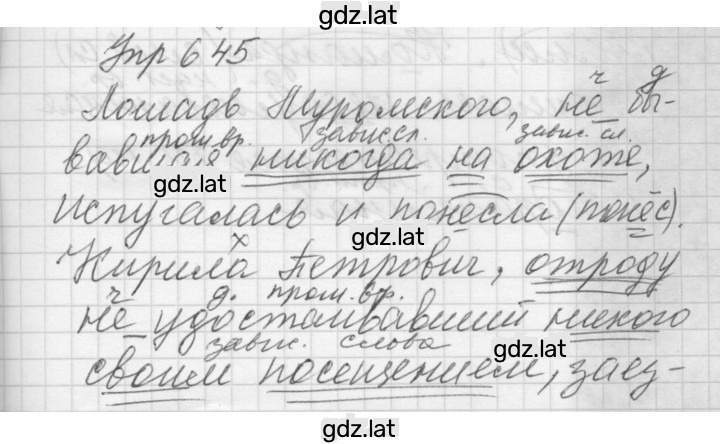 gdz.lat
Упр 645
ч д
Лошадь Муромского, не бы-
прош.вр. завис.сл. завис. сл.
вавшая никогда на охоте,
gdz.lat
испугалась и понесла (понёс).
gdz.lat
Кирила Петрович, отроду
ч д. прош. вр.
не удостаивавший никого
завис. слова
gdz.lat
своим посещением, заез-
gdz.lat